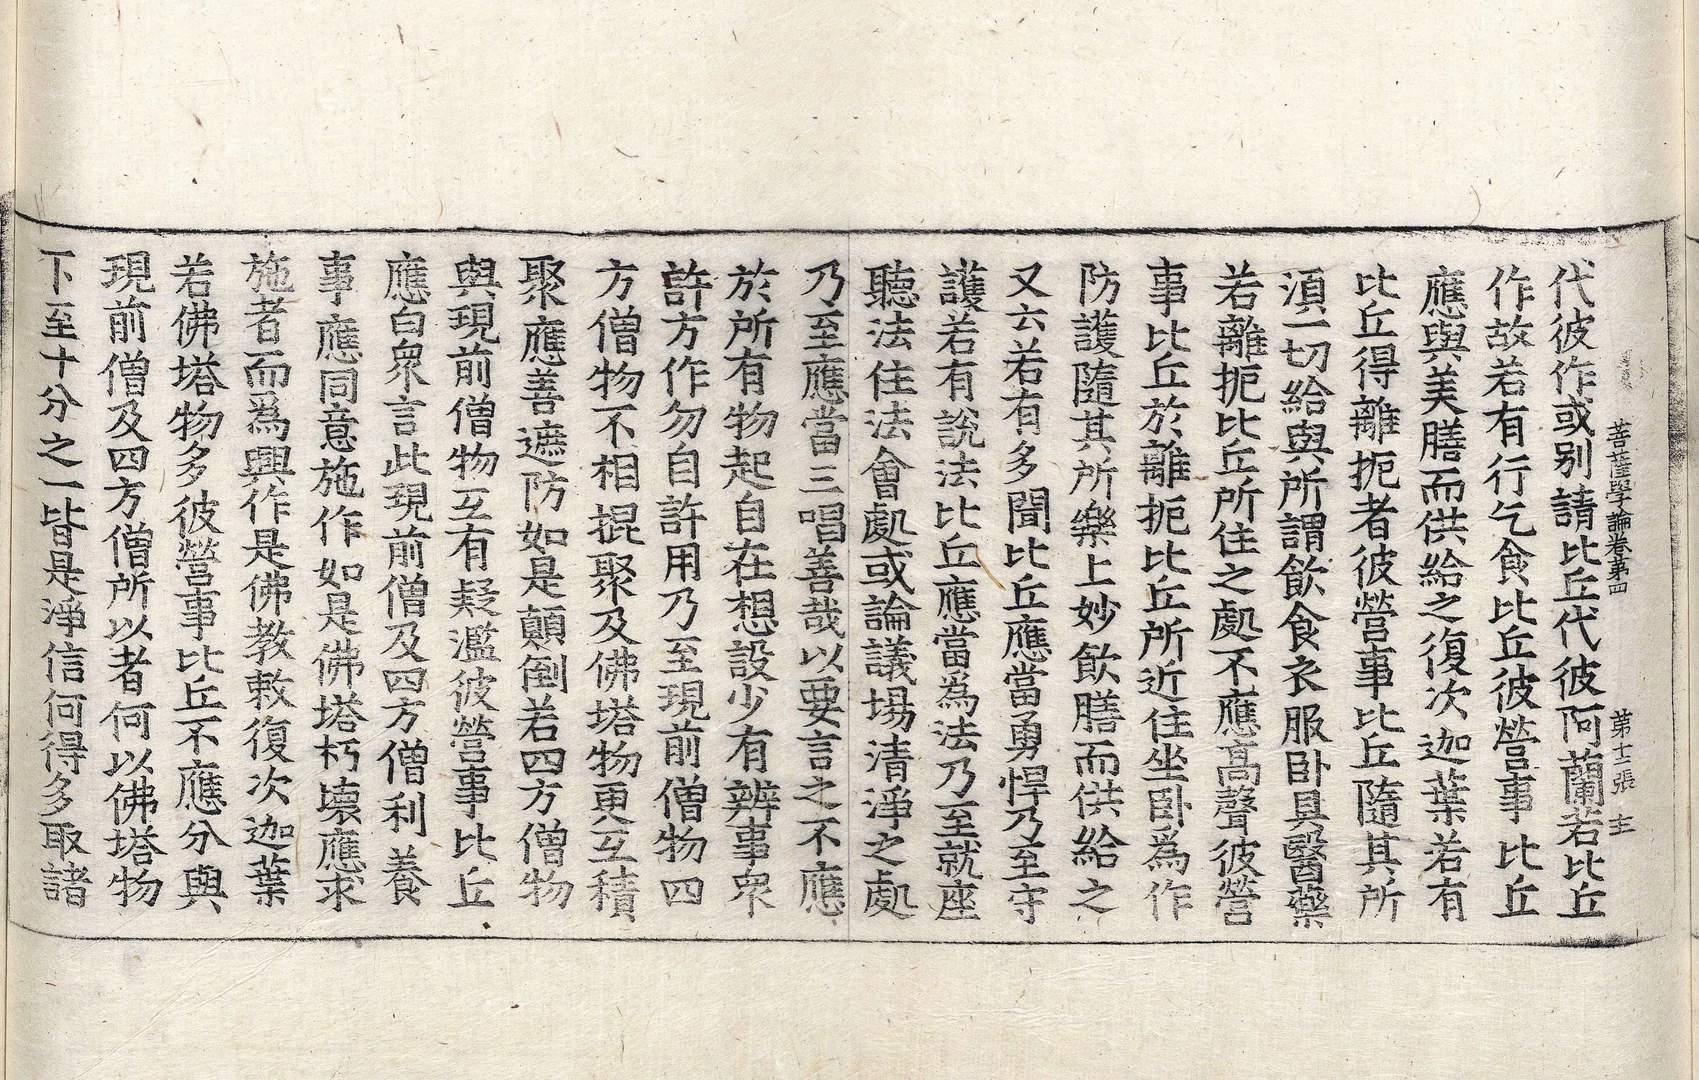 菩薩學論卷第四　第十二張　主
代彼作或别請比丘代彼阿蘭若比丘
作故若有行乞食比丘彼營事比丘
應與美膳而供給之復次迦葉若有
比丘得離扼者彼營事比丘隨其所
湏一切給與所謂飲食衣服卧具醫藥
若離扼比丘所住之處不應髙聲彼營
事比丘於離扼比丘所近住坐卧爲作
防護隨其所樂上妙飲膳而供給之
又云若有多聞比丘應當勇悍乃至守
護若有說法比丘應當爲法乃至就座
聽法住法會處或論議場清淨之處
乃至應當三唱善哉以要言之不應
於所有物起自在想設少有辨事衆
許方作勿自許用乃至現前僧物四
方僧物不相掍聚及佛塔物更互積
聚應善遮防如是顛倒若四方僧物
與現前僧物互有疑濫彼營事比丘
應白衆言此現前僧及四方僧利養
事應同意施作如是佛塔朽壞應求
施者而爲興作是佛教敕復次迦葉
若佛塔物多彼營事比丘不應分與
現前僧及四方僧所以者何以佛塔物
下至十分之一皆是淨信何得多取諸